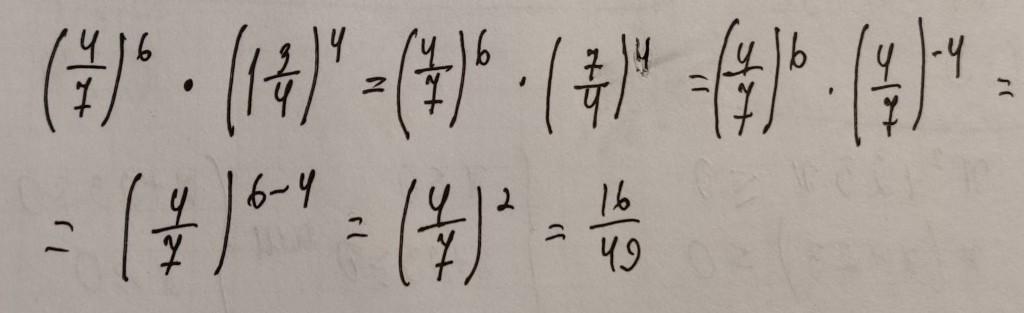 (4/7)^6 · (1 3/4)^4 = (4/7)^6 · (7/4)^4 = (4/7)^6 · (4/7)^-4 =
= (4/7)^6-4 = (4/7)^2 = 16/49